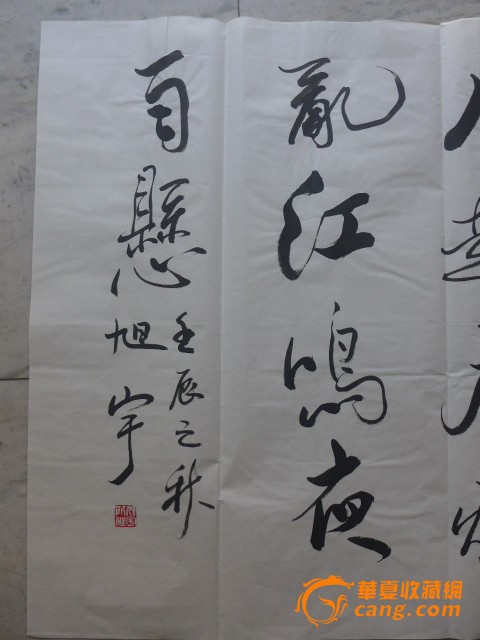 亂江鳴夜
雨懸
壬辰之秋
旭宇
華夏收藏網
cang.com